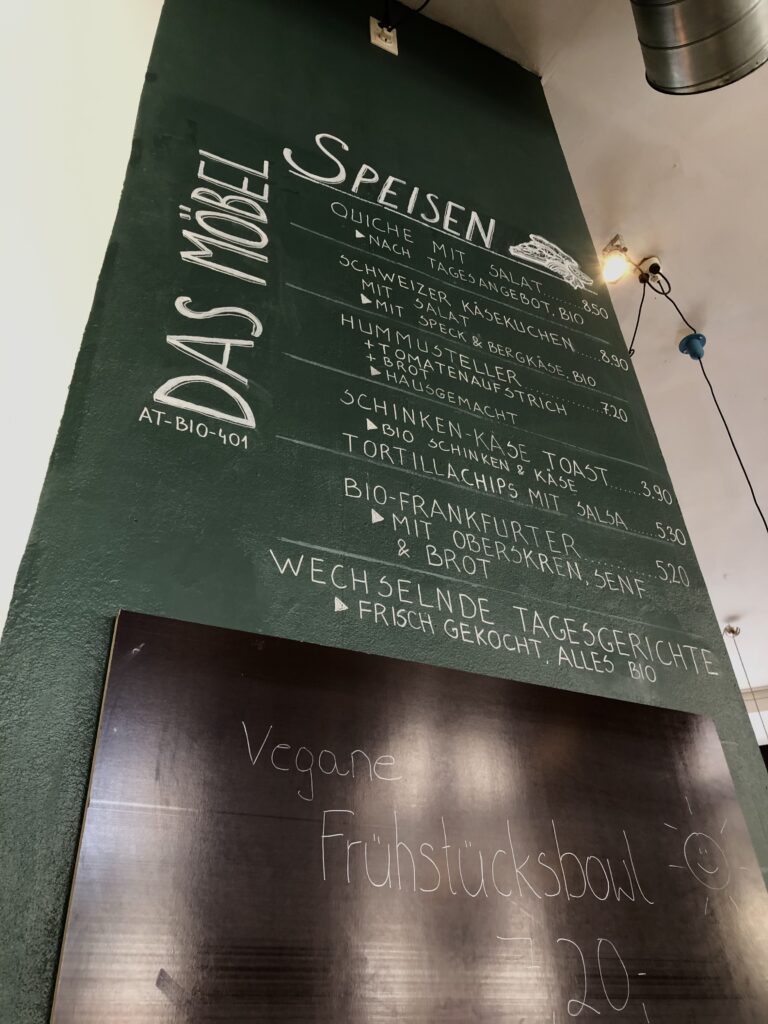 DAS MÖBEL
AT-BIO-401
SPEISEN
QUICHE MIT SALAT........8.50
▶NACH TAGESANGEBOT, BIO
SCHWEIZER KÄSEKUCHEN....8.90
MIT SALAT
▶MIT SPECK & BERGKÄSE, BIO
HUMMUSTELLER............7.20
+TOMATENAUFSTRICH
+BROT
▶HAUSGEMACHT
SCHINKEN-KÄSE TOAST.....3.90
▶BIO SCHINKEN & KÄSE
TORTILLACHIPS MIT SALSA....5.30
BIO-FRANKFURTER.........5.20
▶MIT OBERSKREN, SENF
& BROT
WECHSELNDE TAGESGERICHTE
▶FRISCH GEKOCHT, ALLES BIO
Vegane
Frühstücksbowl
7,20,-